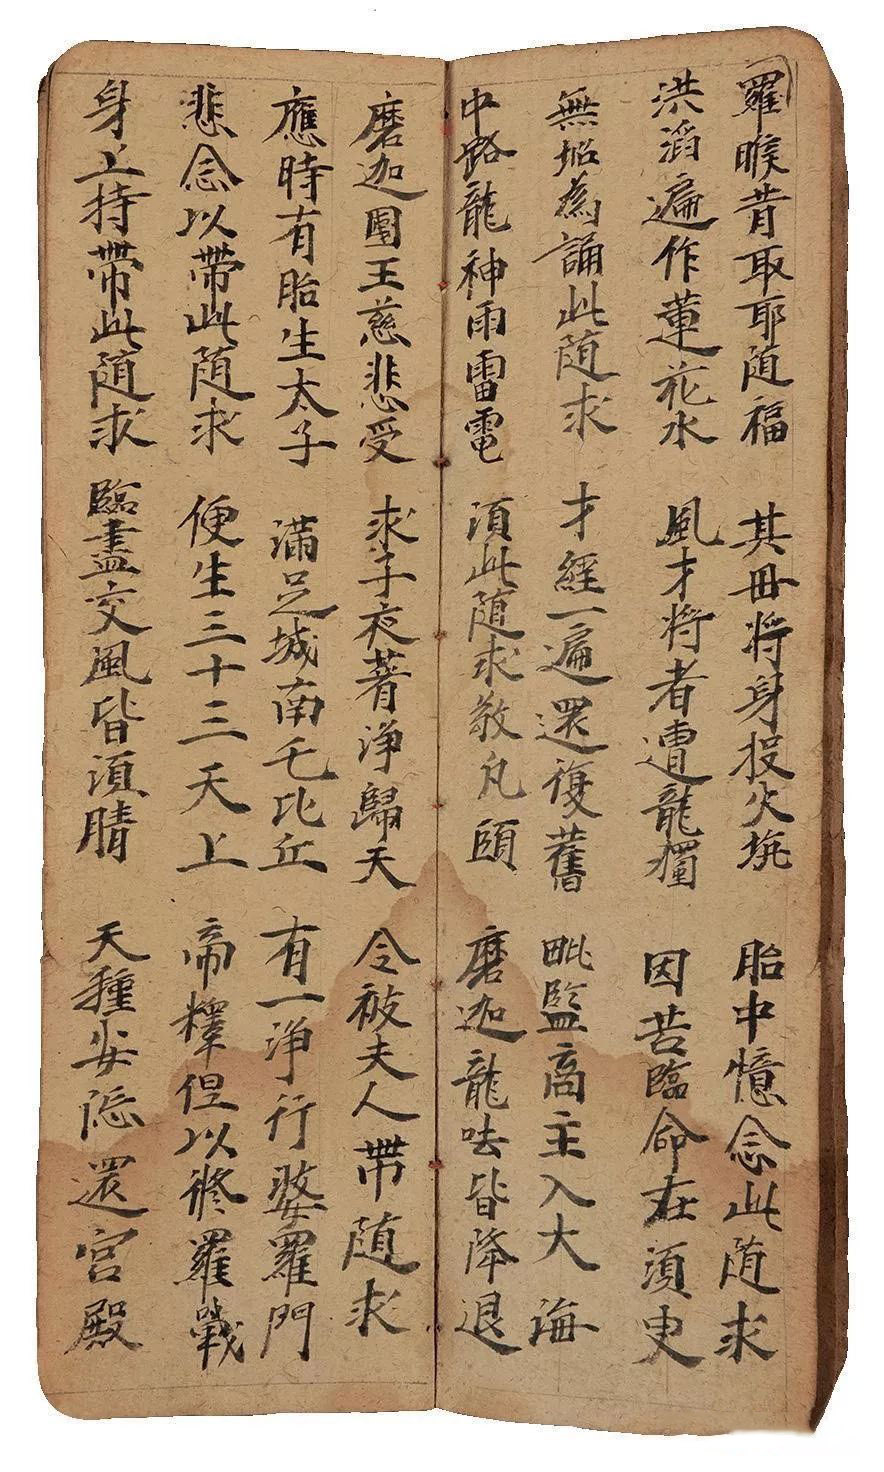 羅睺昔取耶随福 其毌将身投火坑 胎中憶念此随求
洪滔遍作蓮花水 風才将者遭龍獨 因苦臨命在湏臾
無垢為誦此随求 才經一遍還復舊 毗監商主入大海
中路龍神雨雷電 湏此随求敎凡頤 磨迦龍呿皆降退
磨迦國王慈悲受 求子夜著淨歸天 令被夫人帶随求
應時有胎生太子 滿足城南乇比丘 有一淨行婆羅門
悲念以帶此随求 便生三十三天上 帝釋但以修羅戰
身上持帶此随求 臨盡交風皆湏腈 天種安隠還宫殿